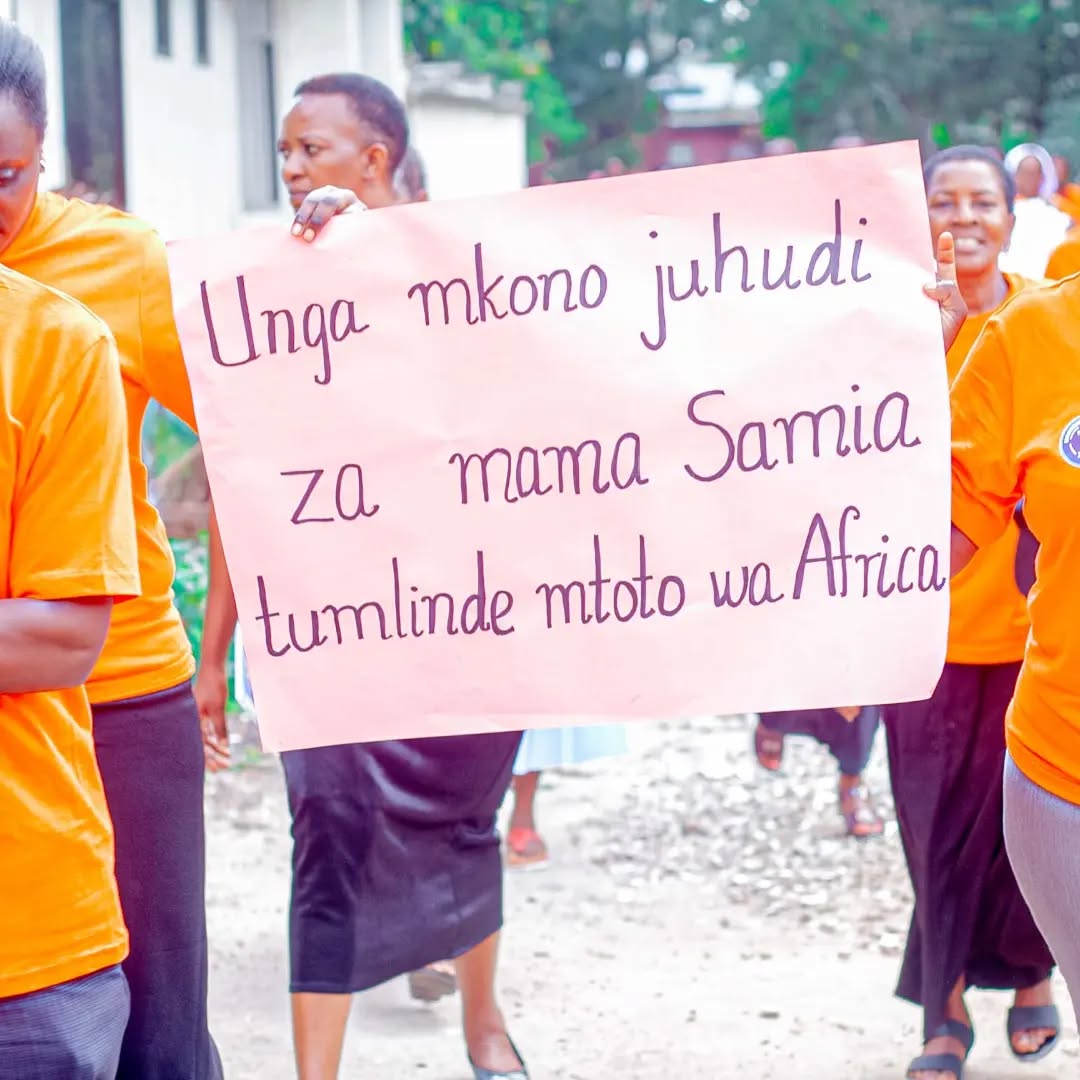 Unga mkono juhudi
za mama Samia
tumlinde mtoto wa Africa